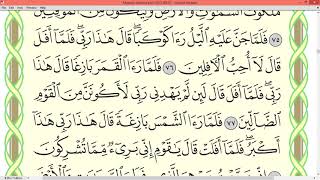 مَلَكُوتَ ٱلسَّمَٰوَٰتِ وَٱلْأَرْضِ وَلِيَكُونَ مِنَ ٱلْمُوقِنِينَ
٧٥ فَلَمَّا جَنَّ عَلَيْهِ ٱلَّيْلُ رَءَا كَوْكَبًا ۖ قَالَ هَٰذَا رَبِّى ۖ فَلَمَّآ أَفَلَ
قَالَ لَآ أُحِبُّ ٱلْءَافِلِينَ ٧٦ فَلَمَّا رَءَا ٱلْقَمَرَ بَازِغًا قَالَ هَٰذَا
رَبِّى ۖ فَلَمَّآ أَفَلَ قَالَ لَئِن لَّمْ يَهْدِنِى رَبِّى لَأَكُونَنَّ مِنَ ٱلْقَوْمِ
ٱلضَّآلِّينَ ٧٧ فَلَمَّا رَءَا ٱلشَّمْسَ بَازِغَةً قَالَ هَٰذَا رَبِّى
هَٰذَآ أَكْبَرُ ۖ فَلَمَّآ أَفَلَتْ قَالَ يَٰقَوْمِ إِنِّى بَرِىٓءٌ مِّمَّا تُشْرِكُونَ